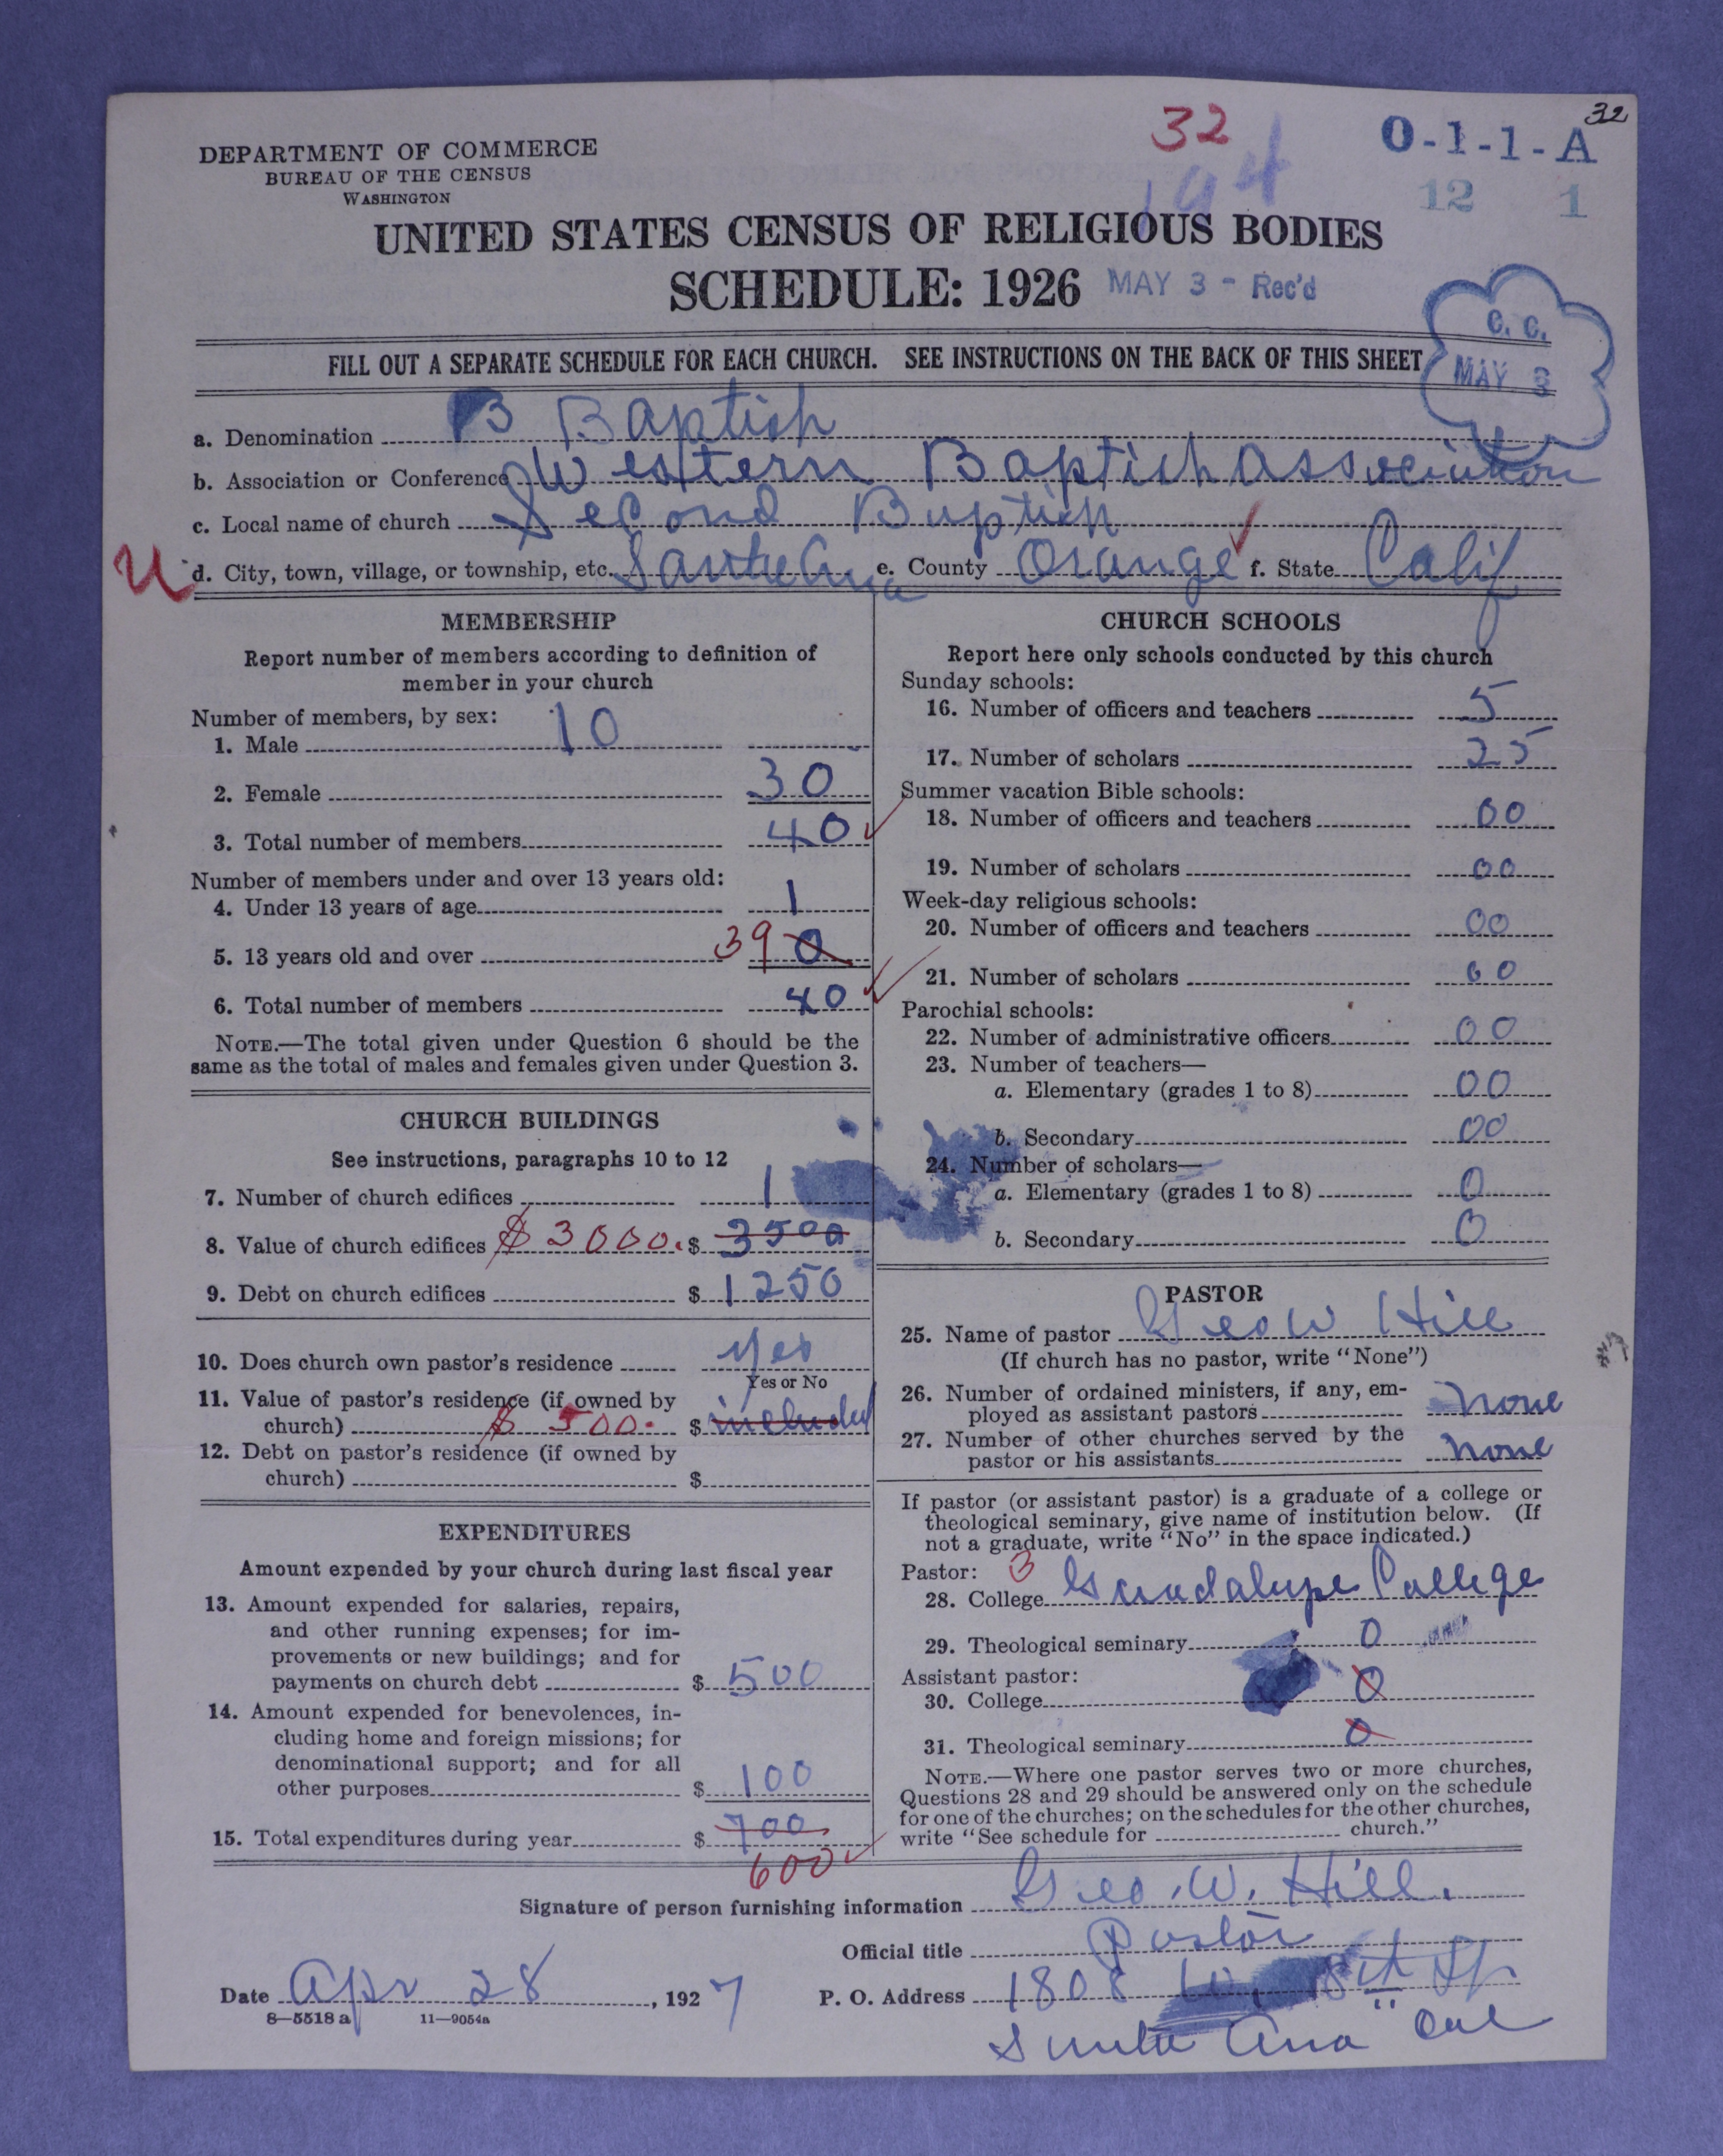 32
32
194
O-1-1-A
12 1
DEPARTMENT OF COMMERCE
BUREAU OF THE CENSUS
WASHINGTON
UNITED STATES CENSUS OF RELIGIOUS BODIES
SCHEDULE: 1926 MAY 3 - Rec'd
C. C.
MAY 3
FILL OUT A SEPARATE SCHEDULE FOR EACH CHURCH. SEE INSTRUCTIONS ON THE BACK OF THIS SHEET
a. Denomination B Baptist
b. Association or Conference Western Baptist Association
c. Local name of church Second Baptist
U d. City, town, village, or township, etc. Santa Ana e. County Orange f. State Calif
MEMBERSHIP
Report number of members according to definition of
member in your church
Number of members, by sex:
1. Male 10
2. Female 30
3. Total number of members 40
Number of members under and over 13 years old:
4. Under 13 years of age 1
5. 13 years old and over 39 0
6. Total number of members 40
NOTE.—The total given under Question 6 should be the
same as the total of males and females given under Question 3.
CHURCH BUILDINGS
See instructions, paragraphs 10 to 12
7. Number of church edifices 1
8. Value of church edifices $3000. $ 3500
9. Debt on church edifices $ 1250
10. Does church own pastor's residence yes
Yes or No
11. Value of pastor's residence (if owned by
church) $ 500. $ included
12. Debt on pastor's residence (if owned by
church) $
EXPENDITURES
Amount expended by your church during last fiscal year
13. Amount expended for salaries, repairs,
and other running expenses; for im-
provements or new buildings; and for
payments on church debt $ 500
14. Amount expended for benevolences, in-
cluding home and foreign missions; for
denominational support; and for all
other purposes $ 100
15. Total expenditures during year $ 700
600
CHURCH SCHOOLS
Report here only schools conducted by this church
Sunday schools:
16. Number of officers and teachers 5
17. Number of scholars 25
Summer vacation Bible schools:
18. Number of officers and teachers 00
19. Number of scholars 00
Week-day religious schools:
20. Number of officers and teachers 00
21. Number of scholars 00
Parochial schools:
22. Number of administrative officers 00
23. Number of teachers—
a. Elementary (grades 1 to 8) 00
b. Secondary 00
24. Number of scholars—
a. Elementary (grades 1 to 8) 0
b. Secondary 0
PASTOR
25. Name of pastor Geo W Hill
(If church has no pastor, write "None")
26. Number of ordained ministers, if any, em-
ployed as assistant pastors none
27. Number of other churches served by the
pastor or his assistants none
If pastor (or assistant pastor) is a graduate of a college or
theological seminary, give name of institution below. (If
not a graduate, write "No" in the space indicated.)
Pastor: 3
28. College Guadalupe College
29. Theological seminary 0
Assistant pastor:
30. College 0
31. Theological seminary 0
NOTE.—Where one pastor serves two or more churches,
Questions 28 and 29 should be answered only on the schedule
for one of the churches; on the schedules for the other churches,
write "See schedule for church."
Signature of person furnishing information Geo. W. Hill.
Official title Pastor
Date Apr 28, 1927 P. O. Address 1808 W. 8th St
8—5518 a 11—9054a
Santa Ana Cal